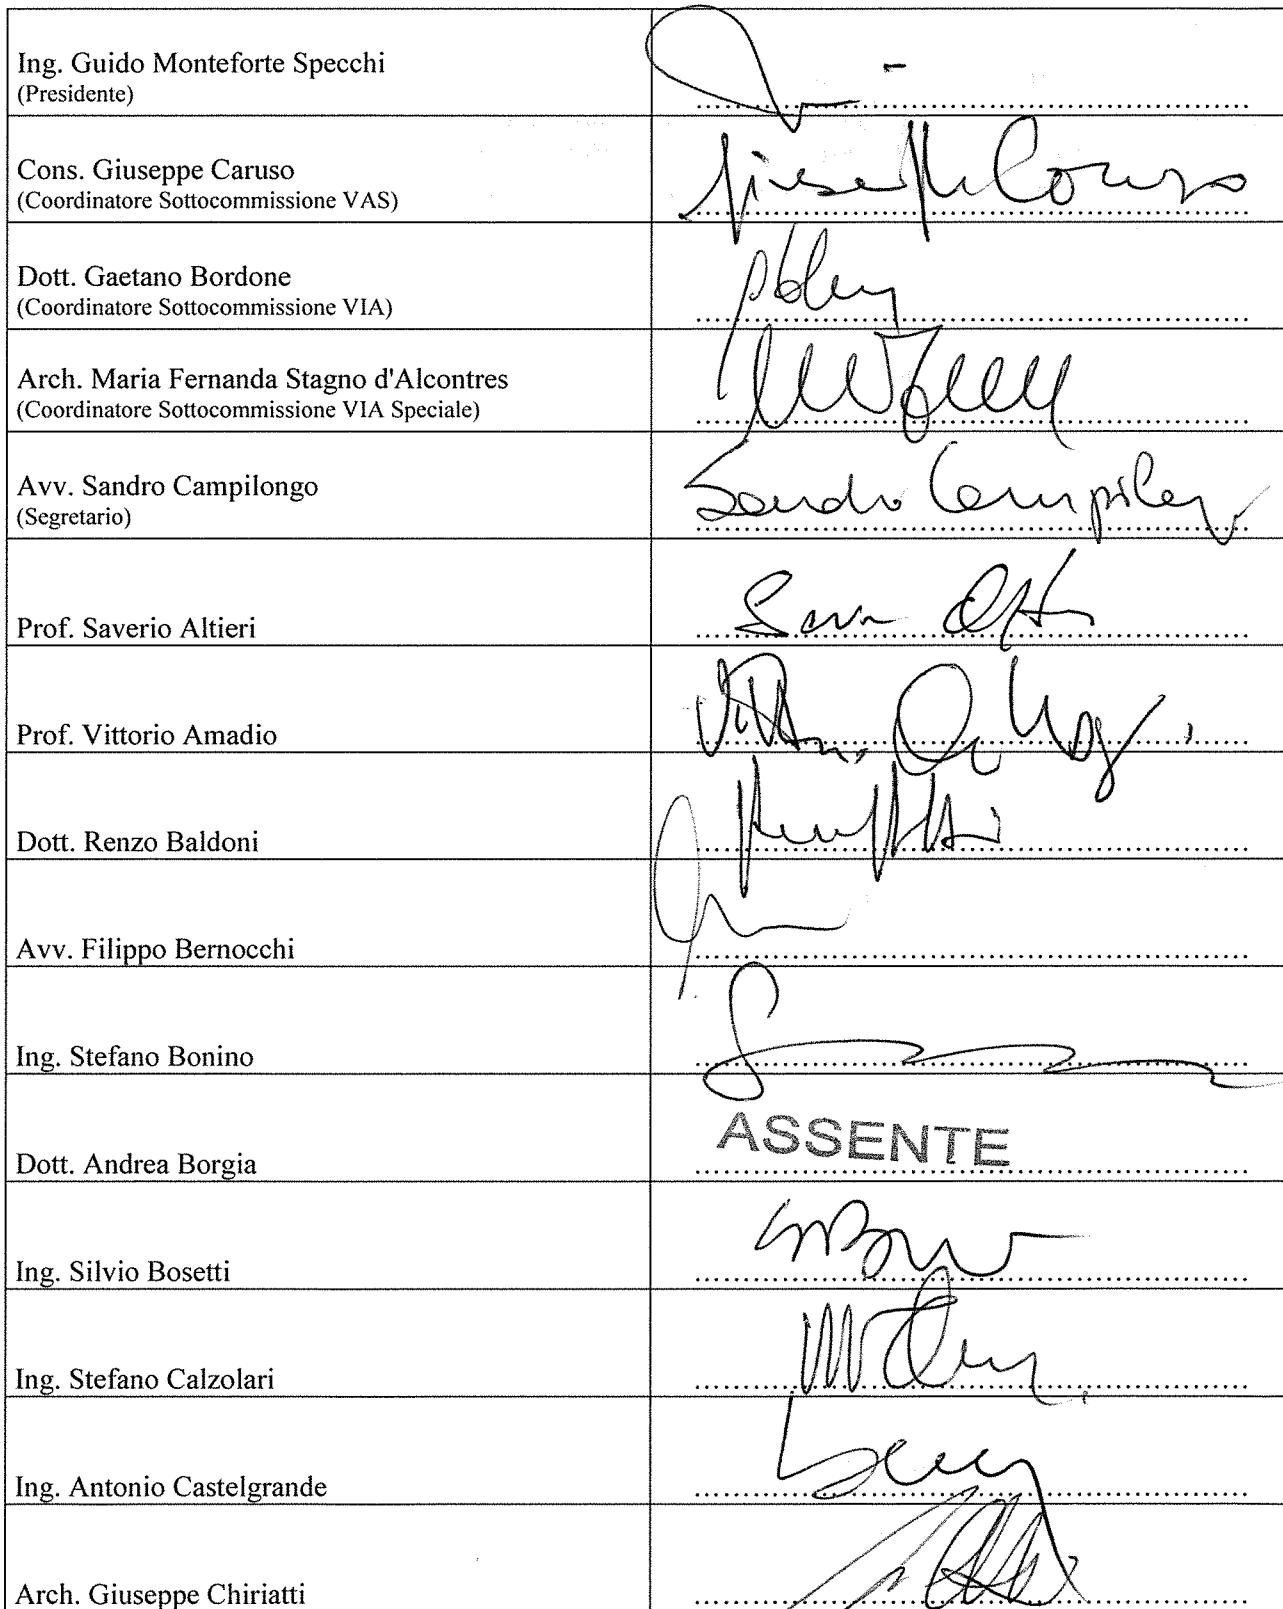 Ing. Guido Monteforte Specchi
(Presidente)
Cons. Giuseppe Caruso
(Coordinatore Sottocommissione VAS)
Giuseppe Caruso
Dott. Gaetano Bordone
(Coordinatore Sottocommissione VIA)
Arch. Maria Fernanda Stagno d'Alcontres
(Coordinatore Sottocommissione VIA Speciale)
Avv. Sandro Campilongo
(Segretario)
Sandro Campilong
Prof. Saverio Altieri
Prof. Vittorio Amadio
Dott. Renzo Baldoni
Avv. Filippo Bernocchi
Ing. Stefano Bonino
Dott. Andrea Borgia
ASSENTE
Ing. Silvio Bosetti
Ing. Stefano Calzolari
Ing. Antonio Castelgrande
Arch. Giuseppe Chiriatti